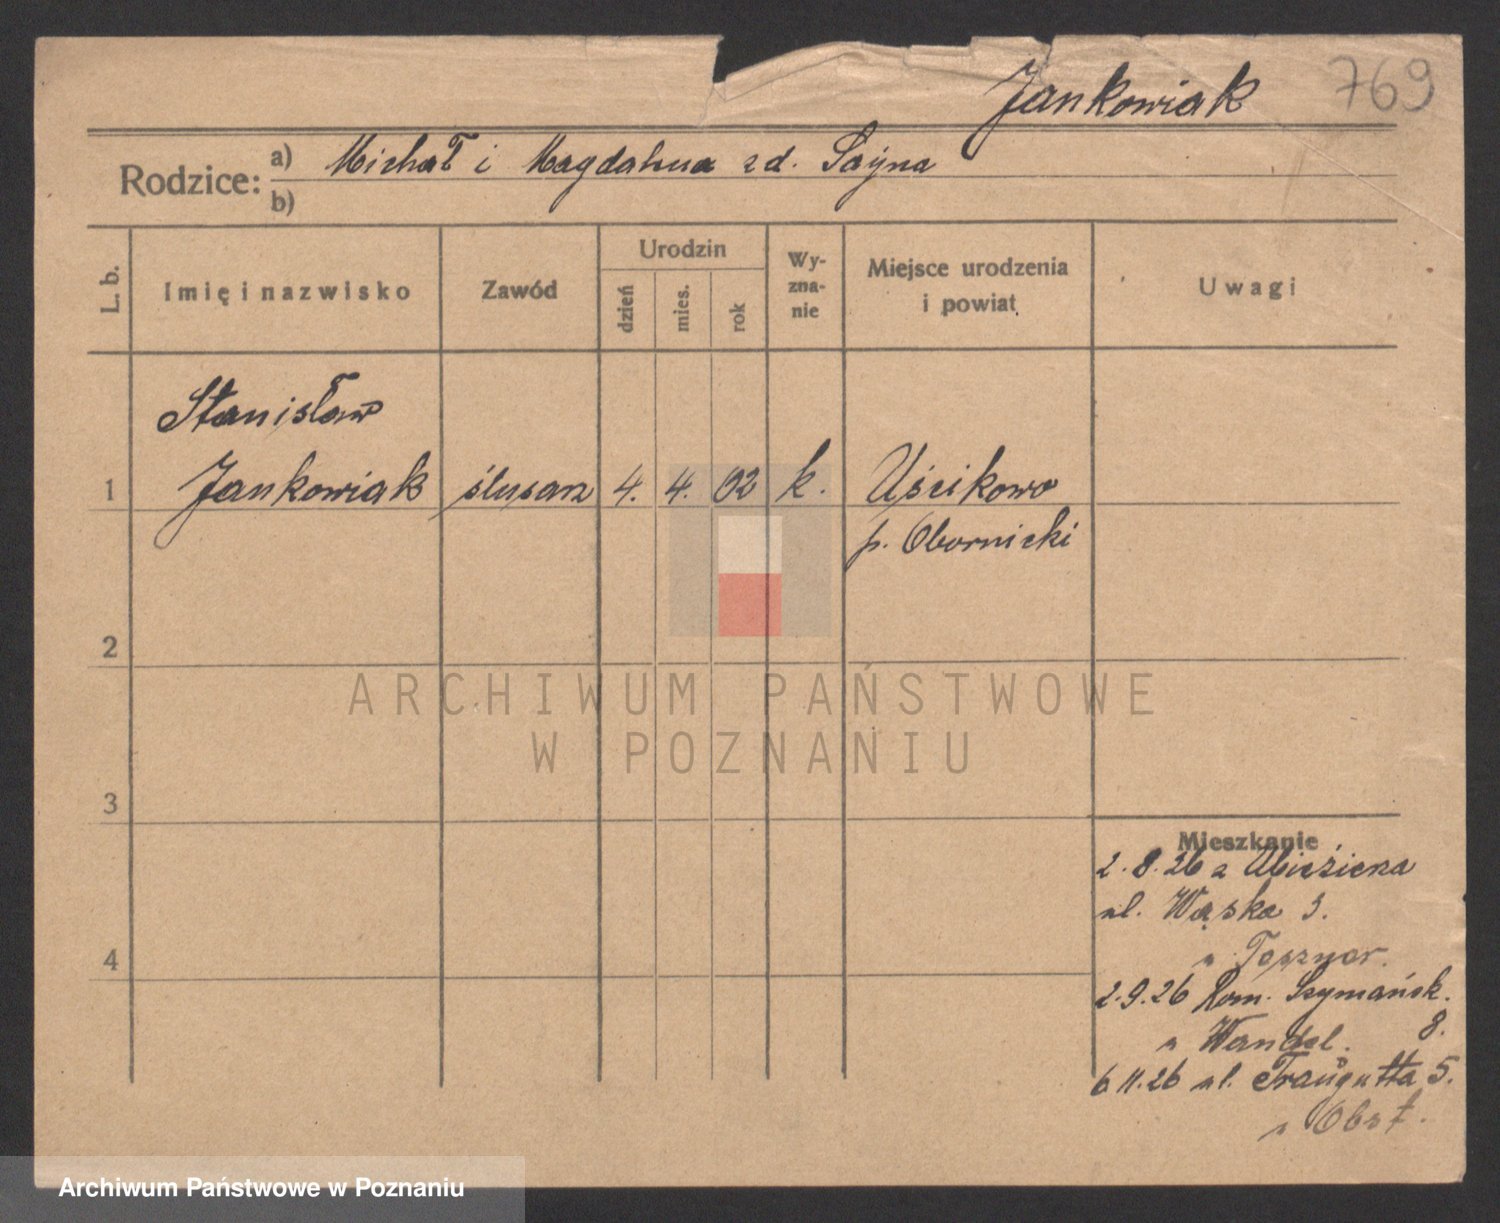 Jankowiak 769
Rodzice: a) Michał i Magdalena zd.
b)
L. b. Imię i nazwisko Zawód Urodzin dzień mies. rok Wy-zna-nie Miejsce urodzenia i powiat Uwagi
Stanisław
1 Jankowiak ślusarz 4. 4. 02 k. Uścikowo
p. Obornicki
2
ARCHIWUM PAŃSTWOWE
W POZNANIU
3
Mieszkanie
2.8.26 z
ul. Wąska 3.
4
2.9.26 Rom. Szymańsk.
8.
6.11.26 ul. Traugutta 5.
Archiwum Państwowe w Poznaniu